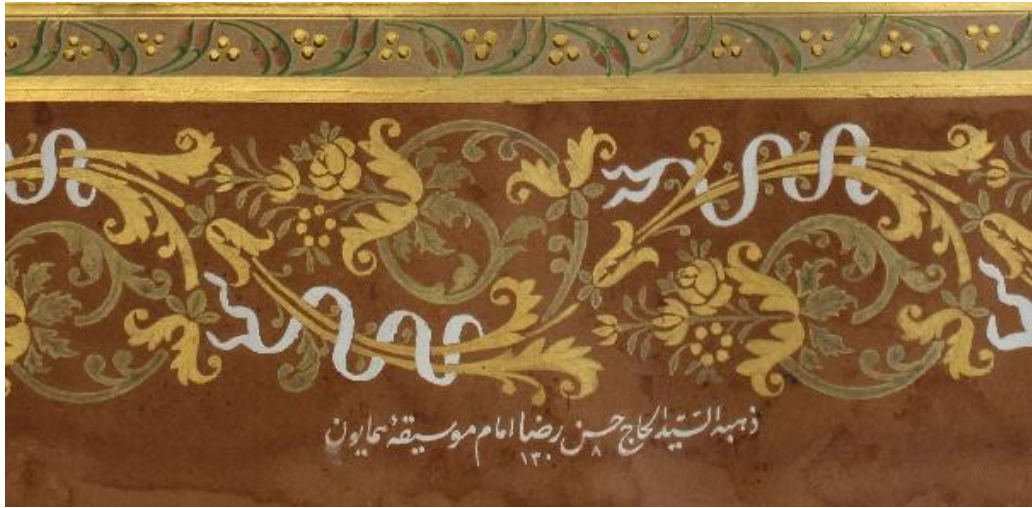 ذهبه السيد الحاج حسن رضا امام موسيقهٔ همايون
١٣٠٨